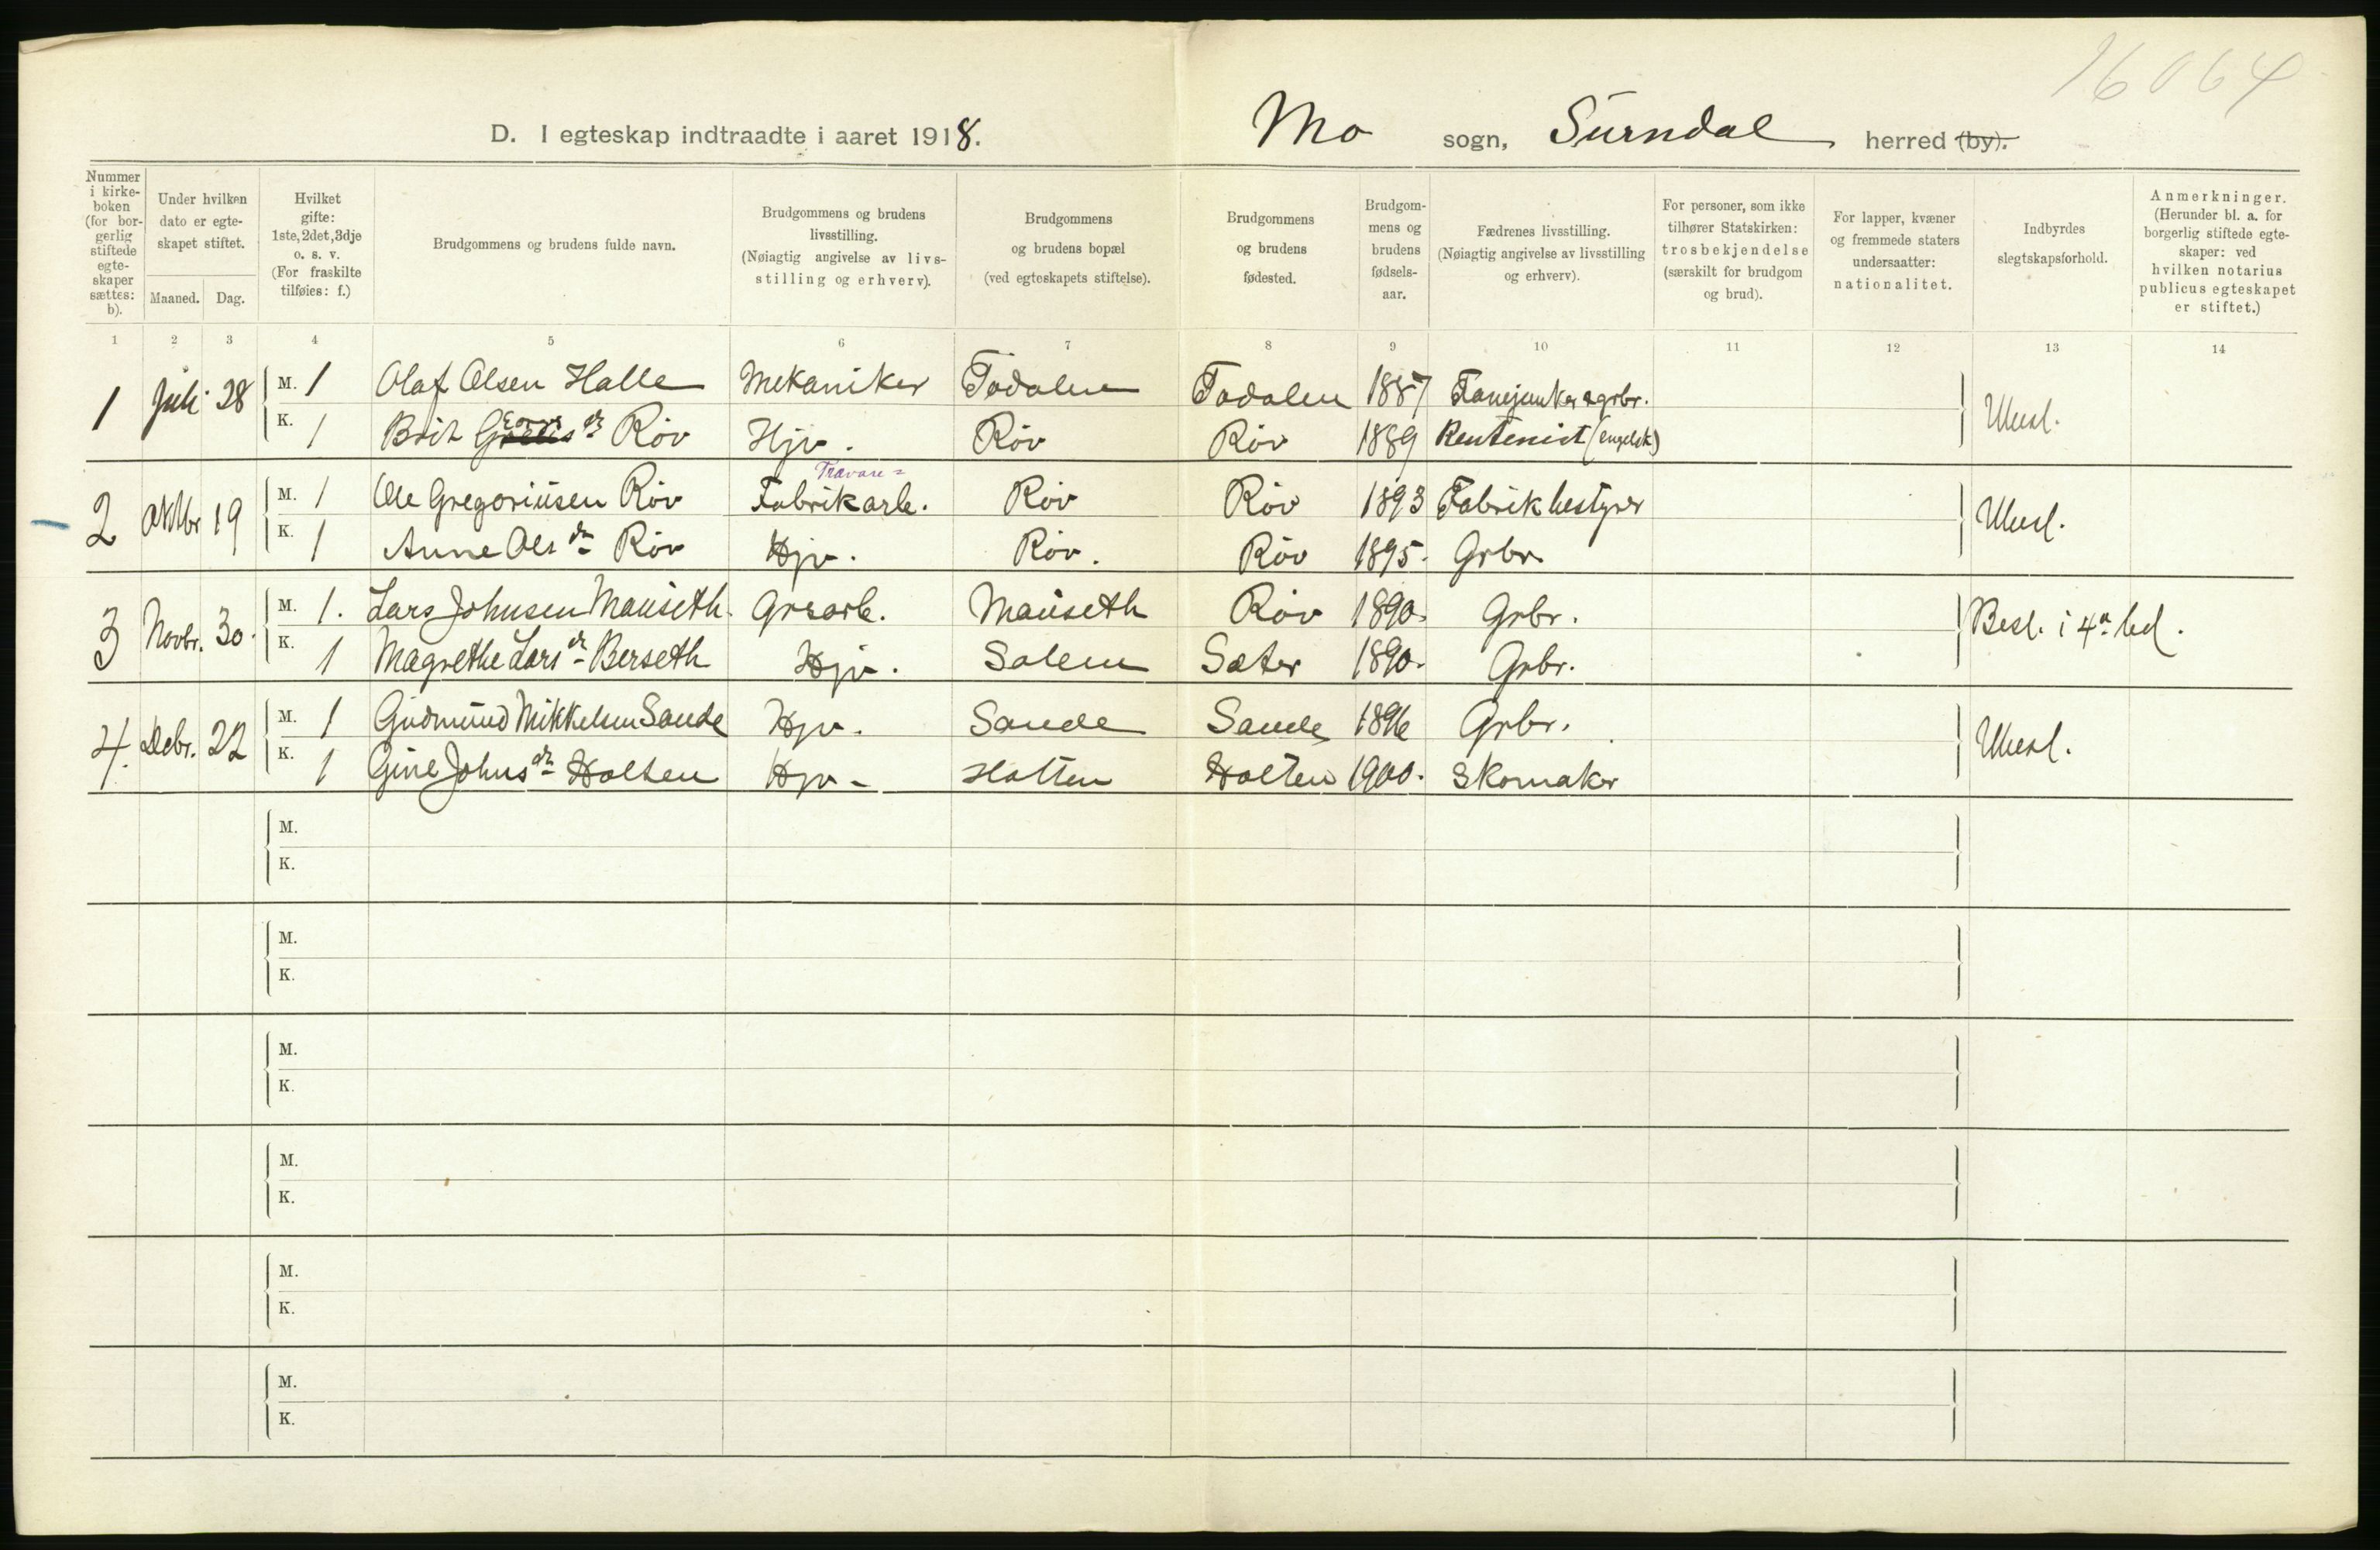 16064
D. I egteskap indtraadte i aaret 1918. Mo sogn, Surndal herred (by).
Nummer i kirke-boken (for bor-gerlig stiftede egte-skaper sættes: b).
Under hvilken dato er egte-skapet stiftet.
Maaned. Dag.
Hvilket gifte: 1ste, 2det, 3dje o. s. v. (For fraskilte tilføies: f.)
Brudgommens og brudens fulde navn.
Brudgommens og brudens livsstilling. (Nøiagtig angivelse av livs-stilling og erhverv).
Brudgommens og brudens bopæl (ved egteskapets stiftelse).
Brudgommens og brudens fødested.
Brudgom-mens og brudens fødsels-aar.
Fædrenes livsstilling. (Nøiagtig angivelse av livsstilling og erhverv).
For personer, som ikke tilhører Statskirken: trosbekjendelse (særskilt for brudgom og brud).
For lapper, kvæner og fremmede staters undersaatter: nationalitet.
Indbyrdes slegtskapsforhold.
Anmerkninger. (Herunder bl. a. for borgerlig stiftede egte-skaper: ved hvilken notarius publicus egteskapet er stiftet.)
1 2 3 4 5 6 7 8 9 10 11 12 13 14
1 Juli 28 M. 1 Olaf Olsen Halle Mekaniker Todalen Todalen 1887 Fanejunker & grbr. Ubesl.
K. 1 Brit Røv Hjv. Røv Røv 1889 Rentenist (engelsk)
Travare-
2 Oktbr 19 M. 1 Ole Gregoriusen Røv Fabrikarb. Røv Røv 1893 Fabrikbestyrer Ubesl.
K. 1 Anne Olsdr Røv Hjv. Røv. Røv 1895. Grbr.
3 Novbr. 30. M. 1. Lars Johnsen Mauseth. Grsarb. Mauseth Røv 1890. Grbr. Besl. i 4. led.
K. 1 Magrethe Larsdr Berseth Hjv. Solem Sæter 1890. Grbr.
4. Debr. 22 M. 1 Gudmund Mikkelsen Sande Hjv. Sande Sande 1896 Grbr. Ubesl.
K. 1 Gine Johnsdr Holten Hjv. Holten Holten 1900. Skomaker
M.
K.
M.
K.
M.
K.
M.
K.
M.
K.
M.
K.